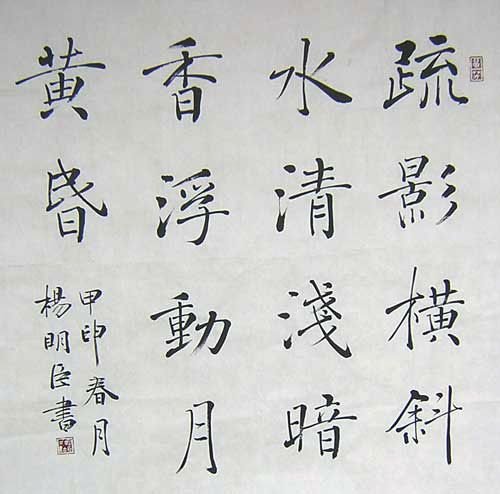 疏影横斜
水清淺暗
香浮動月
黄昏
甲申春月
楊明臣書